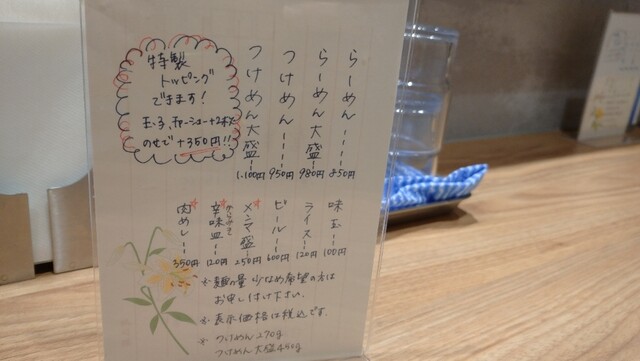 らーめん 850円
らーめん大盛 980円
つけめん 950円
つけめん大盛 1,100円
特製
トッピング
できます!
玉子、チャーシュー+2枚
のせで+350円!!
味玉 100円
ライス 120円
ビール 600円
メンマ盛 250円
辛味皿 120円
肉めし 350円
※麺の量 少なめ希望の方は
お申し付け下さい。
※表示価格は税込です。
※つけめん 270g
つけめん 大盛 450g